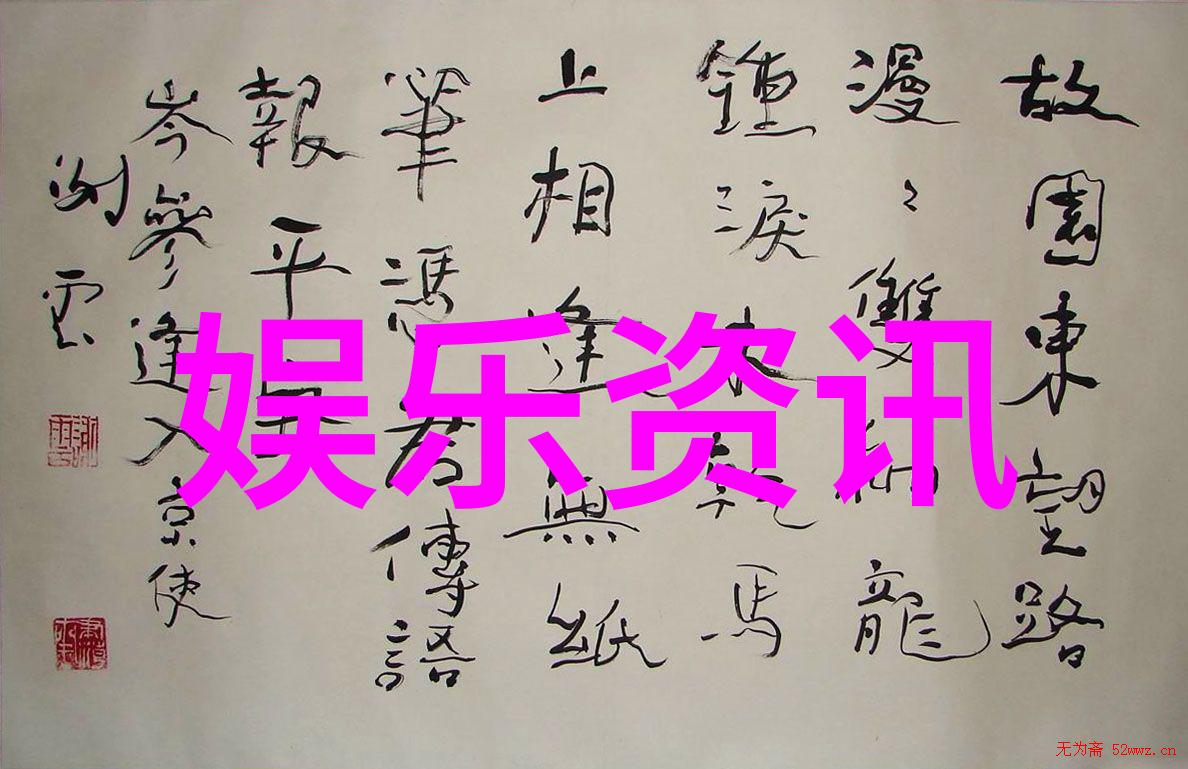 故園東望路
漫〻雙袖龍
鍾淚未乾馬
上相逢無紙
筆憑君傳語
報平安
岑參逢入京使
謝雲
娱乐资讯
无为斋 52wwz.cn